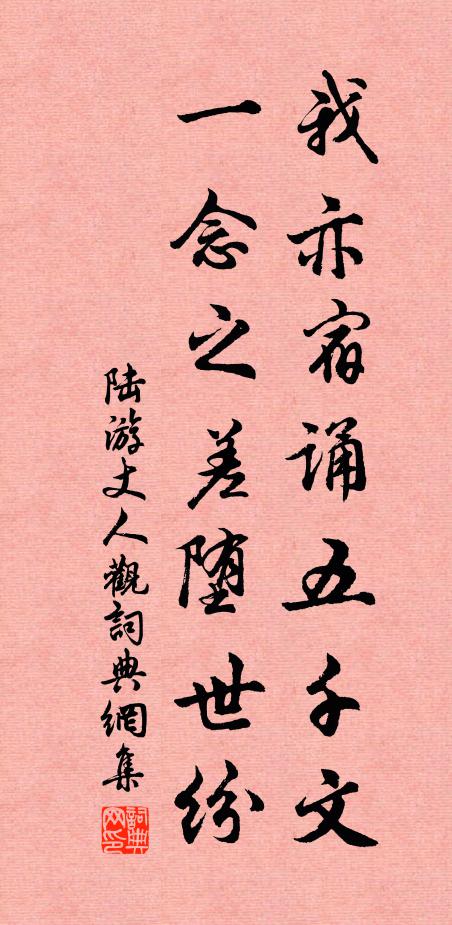 我亦宿诵五千文
一念之差堕世纷
陆游丈人觀詞典網集
詞典网印